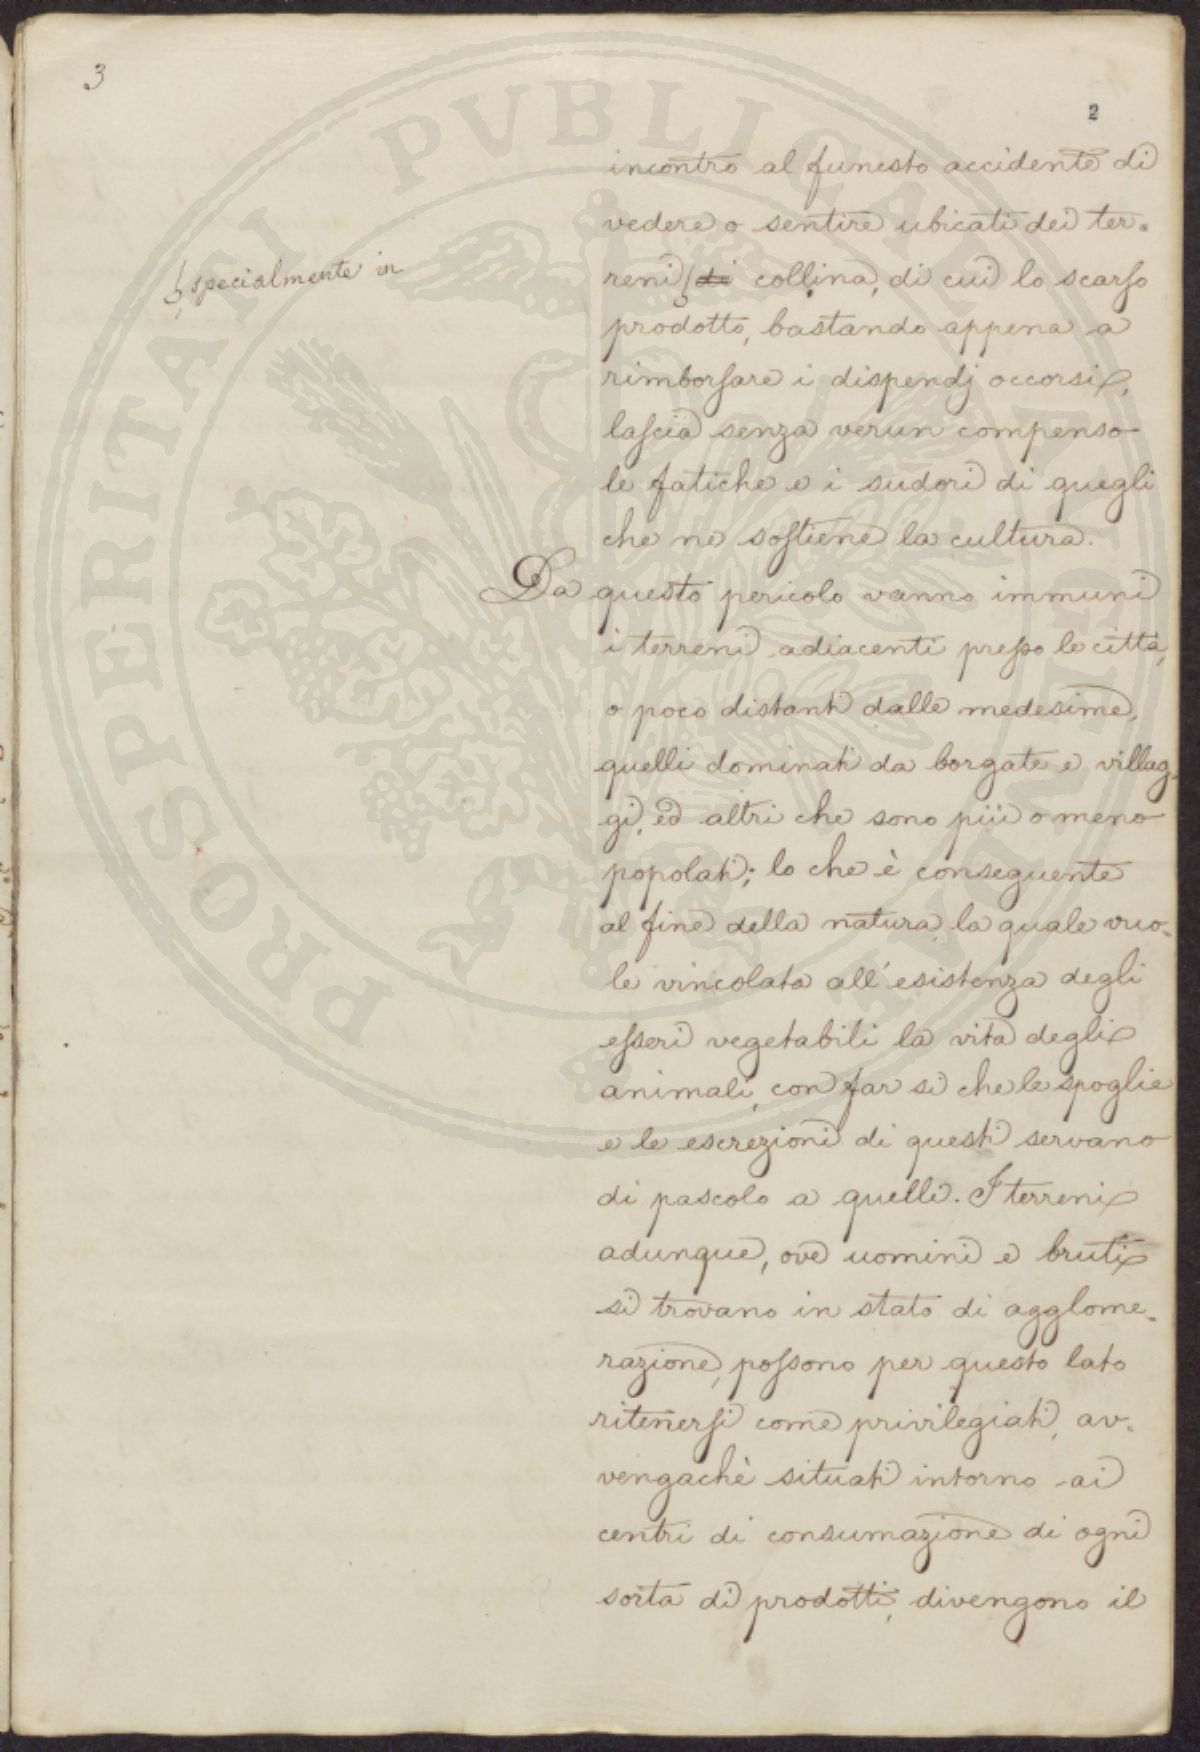 3
2
incontro al funesto accidente di
vedere o sentire ubicati dei ter=
specialmente in
reni di collina, di cui lo scarso
prodotto, bastando appena a
rimborsare i dispendj occorsi,
lascia senza verun compenso
le fatiche e i sudori di quegli
che ne sostiene la cultura.
Da questo pericolo vanno immuni
i terreni adiacenti presso le città,
o poco distanti dalle medesime,
quelli dominati da borgate e villag=
gi, ed altri che sono più o meno
popolati; lo che è conseguente
al fine della natura la quale vuo=
le vincolata all'esistenza degli
esseri vegetabili la vita degli
animali, con far si che le spoglie
e le escrezioni di questi servano
di pascolo a quelli. I terreni
adunque, ove uomini e bruti
si trovano in stato di agglome=
razione, possono per questo lato
ritenersi come privilegiati, av=
vengachè situati intorno ai
centri di consumazione di ogni
sorta di prodotti, divengono il
PROSPERITATI PVBLICAE AVGENDAE